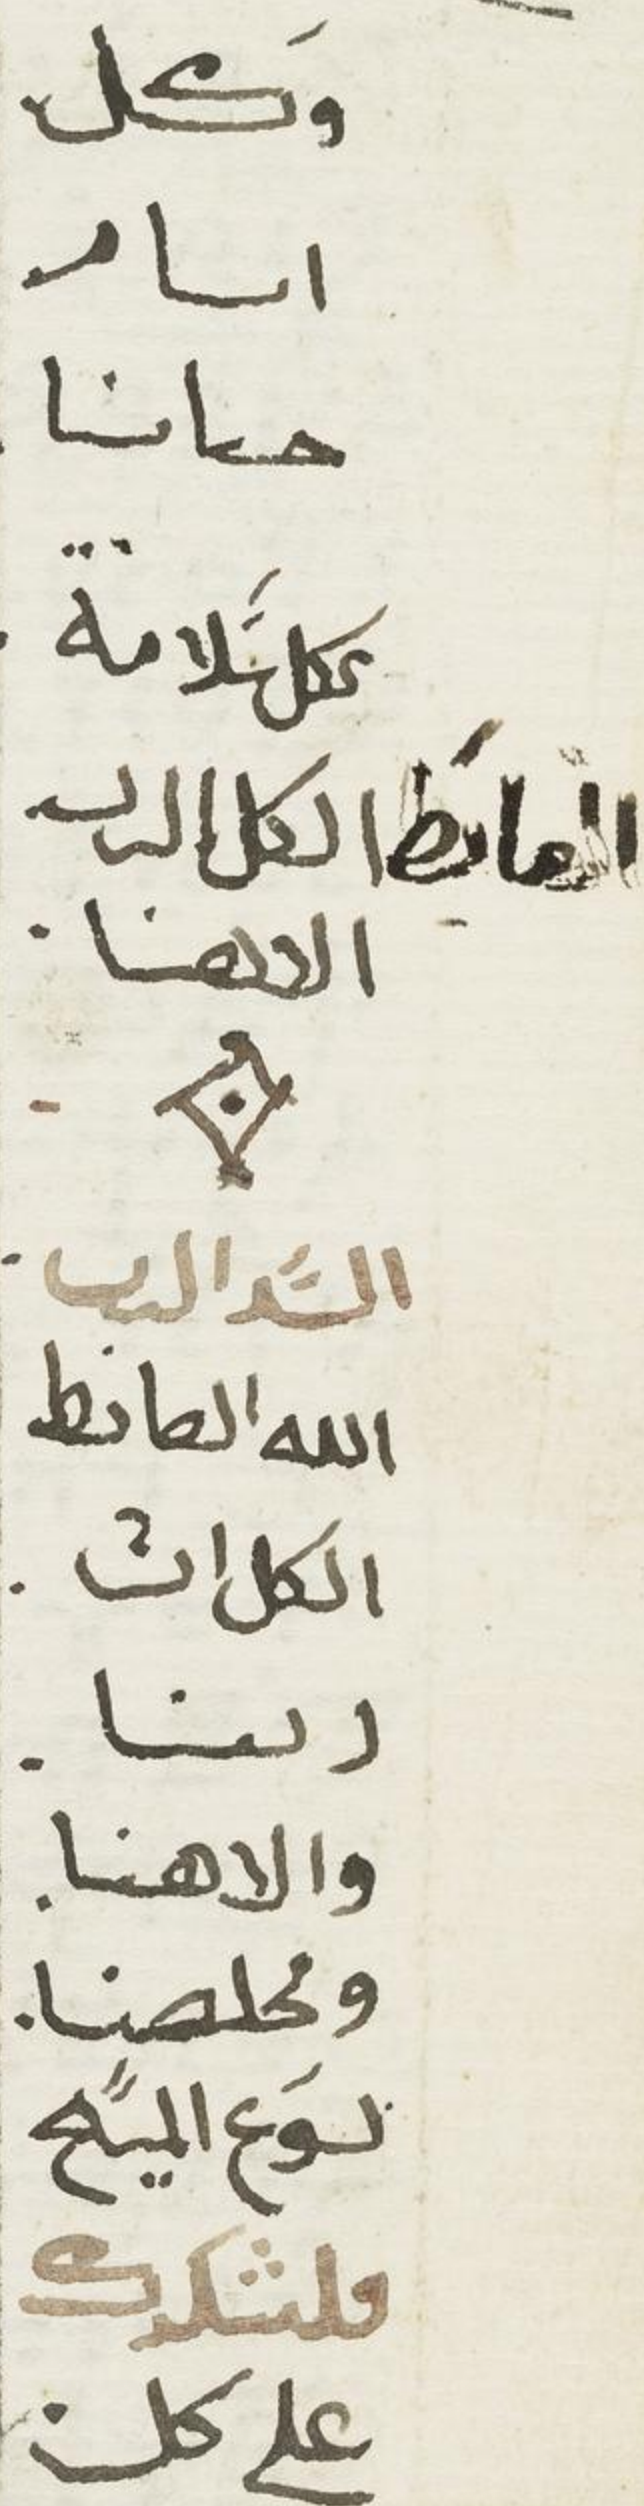 وكل
ايام
حياتنا
بكل سلامة
الضابط الكل الرب
الاهنا
السيد الرب
الله الضابط
الكل انت
ربنا
والاهنا
ومخلصنا
يسوع المسيح
فلنشكرك
على كل